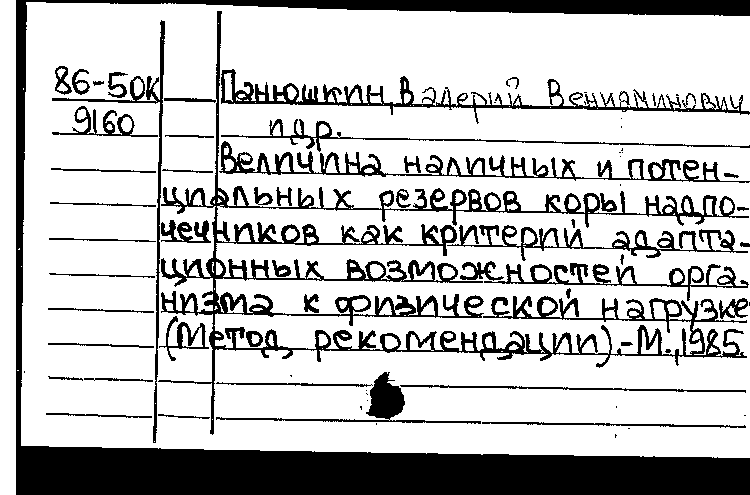 86-50К Панюшкин, Валерий Вениаминович
9160 и др.
Величина наличных и потен-
циальных резервов коры надпо-
чечников как критерий адапта-
ционных возможностей орга-
низма к физической нагрузке
(Метод, рекомендации).-М.,1985.